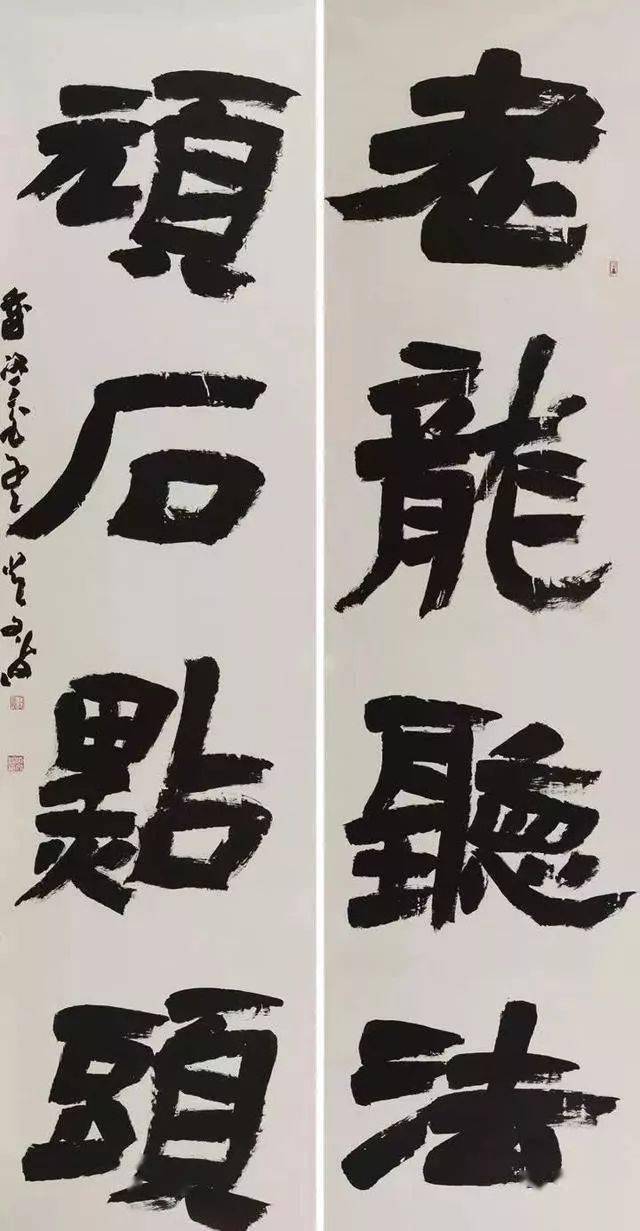 老龍聽法
頑石點頭